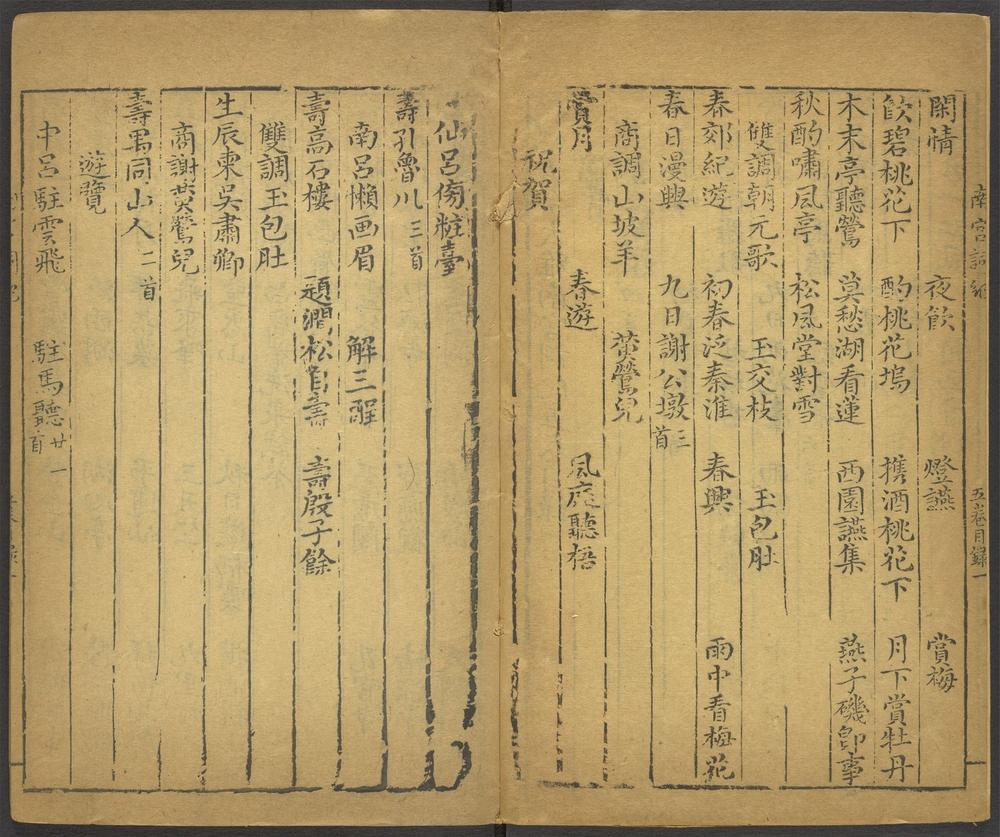 南宮詞紀
五卷目錄一
閑情　夜飲　燈讌　賞梅
飲碧桃花下　酌桃花塢　携酒桃花下　月下賞牡丹
木末亭聽鶯　莫愁湖看蓮　西園讌集　燕子磯卽事
秋酌嘯風亭　松風堂對雪
雙調朝元歌　玉交枝　玉包肚
春郊紀遊　初春泛秦淮　春興　雨中看梅花
春日漫興　九日謝公墩三首
商調山坡羊　黃鶯兒
賞月　春遊　風庭聽梧
祝賀
仙呂傍粧臺
壽孔魯川三首
南呂懶画眉　解三酲
壽高石樓　題澗松自壽　壽殷子餘
雙調玉包肚
生辰柬吳肅卿
商謝黃鶯兒
壽禺同山人二首
遊覽
中呂駐雲飛　駐馬聽廿一首